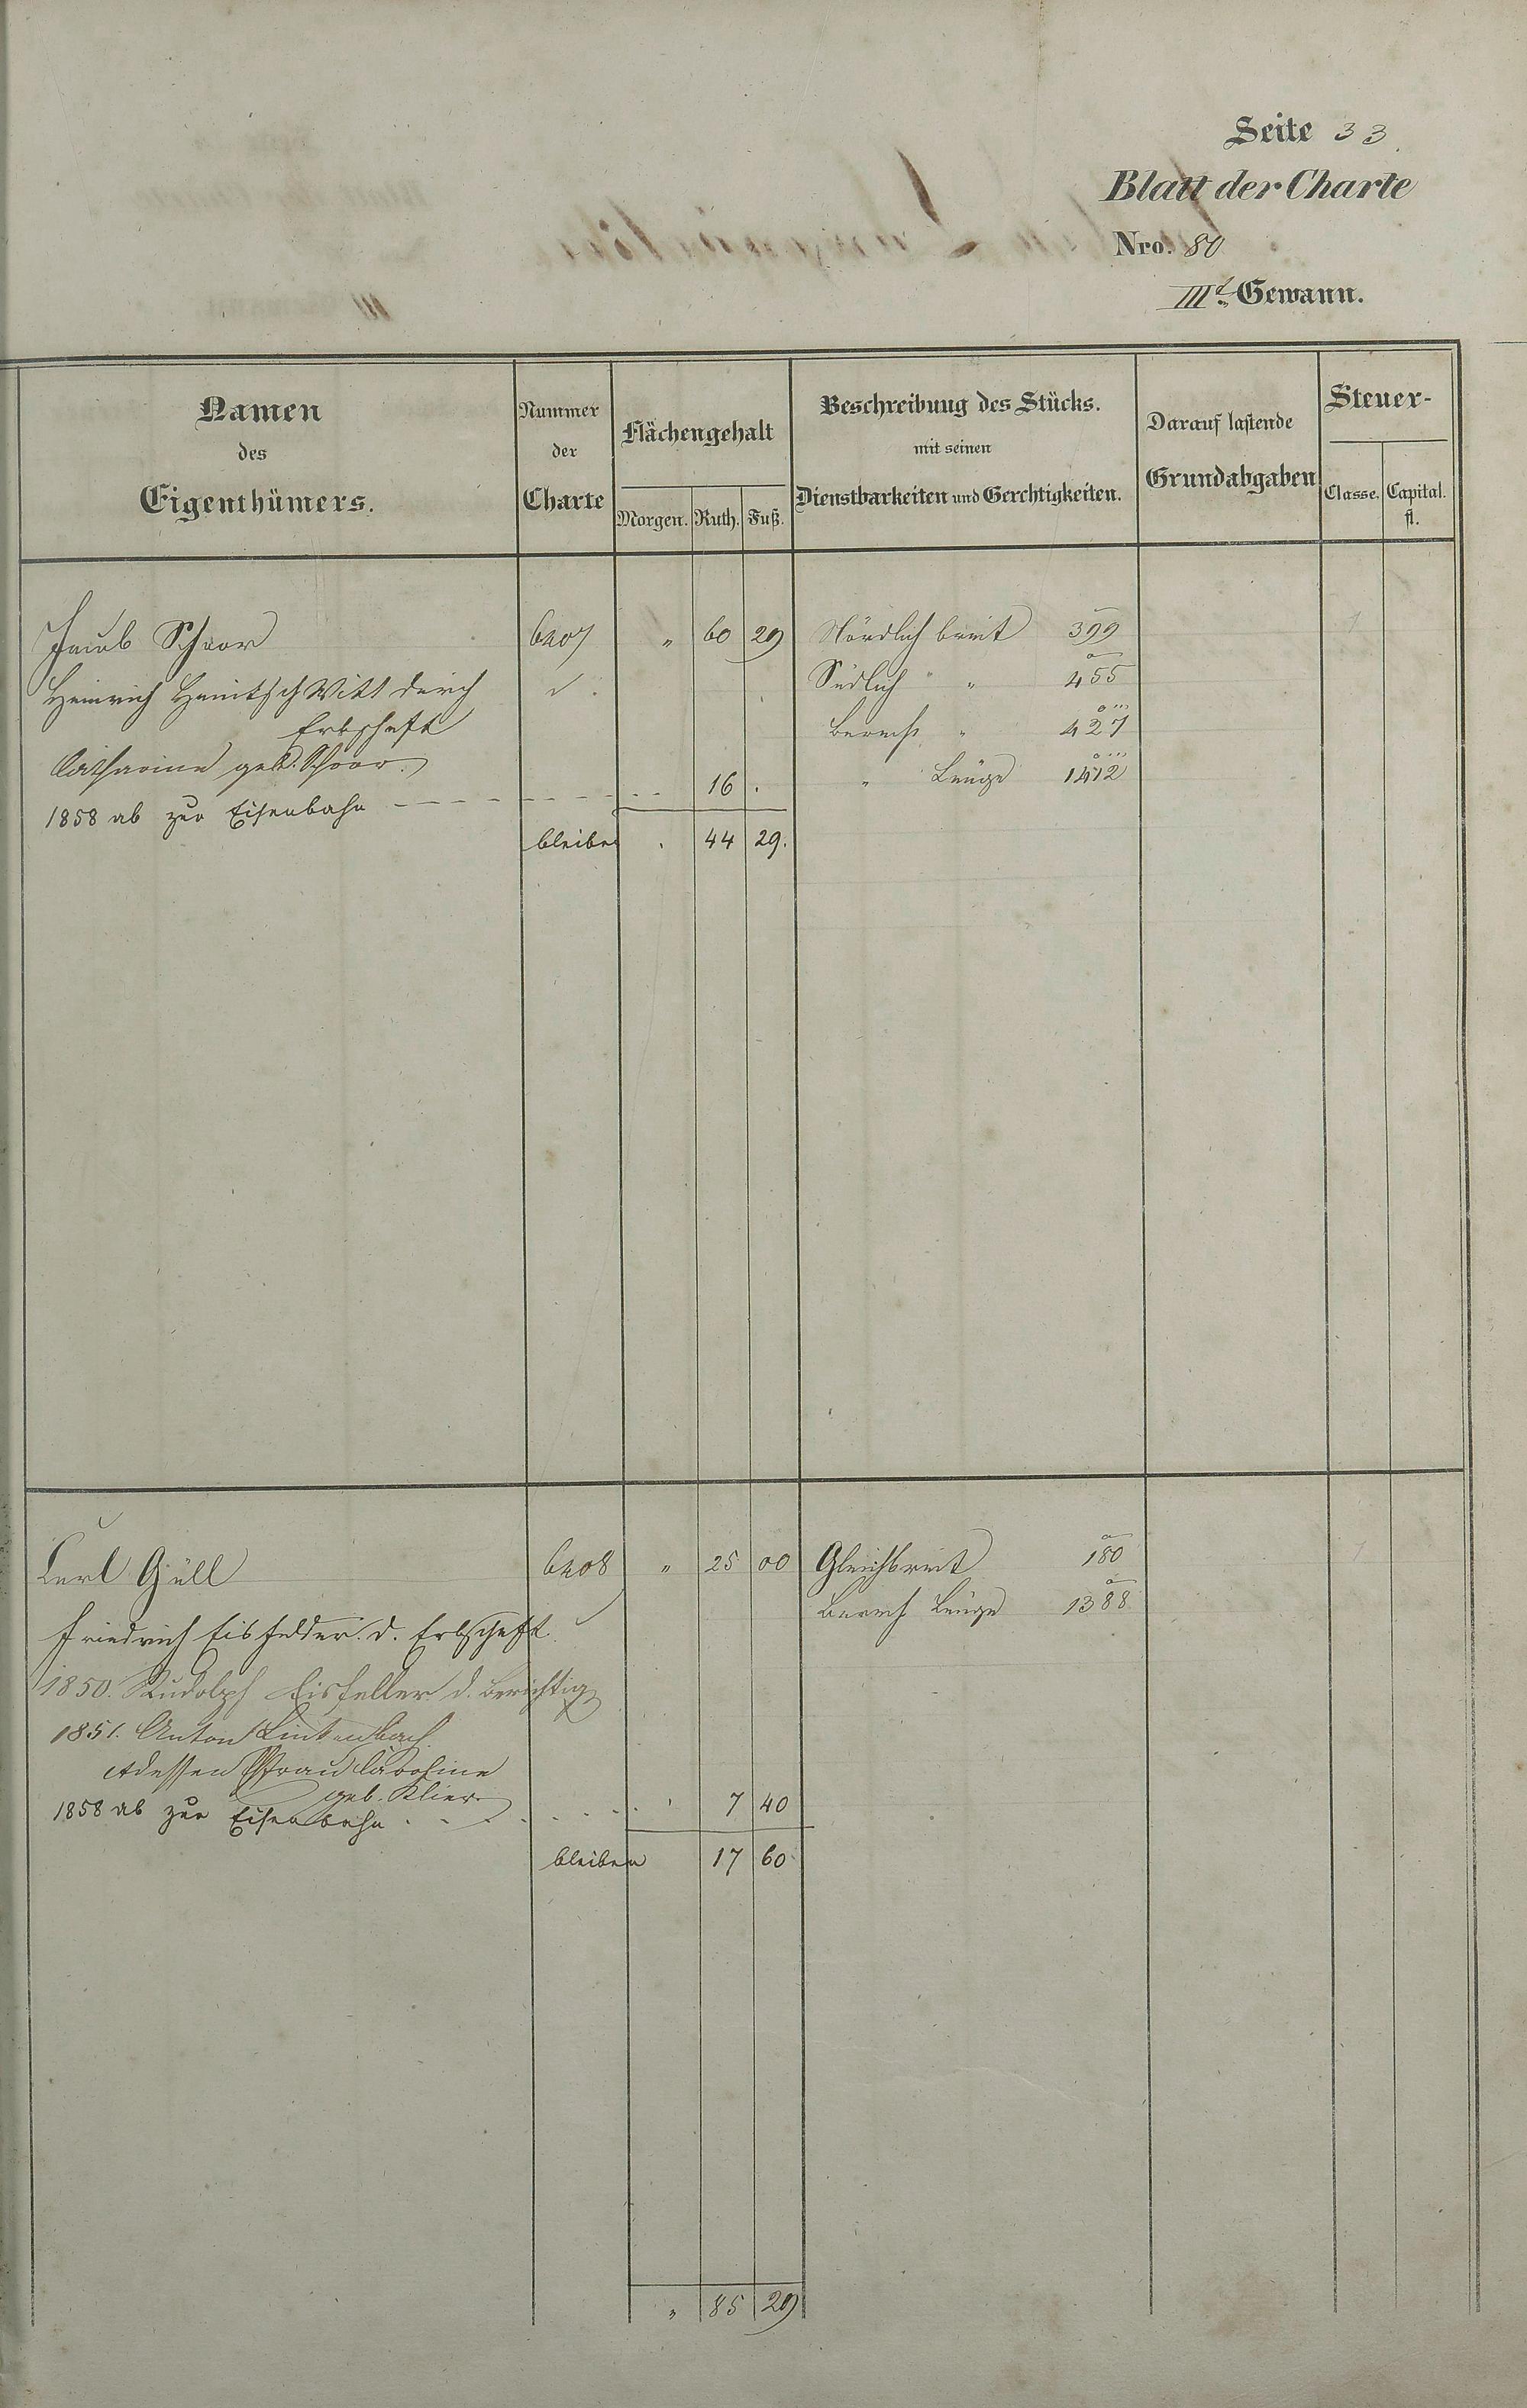 Seite 33.
Blatt der Charte
Nro. 80
IIIt. Gewann.
Namen des Eigenthümers.
Nummer der Charte
Flächengehalt
Morgen. Ruth. Fuß.
Beschreibung des Stücks. mit seinen Dienstbarkeiten und Gerchtigkeiten.
Darauf lastende Grundabgaben
Steuer-
Classe. Capital. fl.
Jacob Schoor 6207 " 60 29 Nördlich breit 399
Heinrich Witt durch Südlich " " 455
Erbschaft Berech " 427
Catharine geb. Schoor. " Länge 1472
1858 ab zur Eisenbahn 16 .
bleiben . 44 29.
Carl Güll 6208 " 25 00 Gleichbreit 180
Berech Länge 1388
Friedrich Eisfelder. d. Erbschaft
1850. Rudolph Eisfeller d. Berichtig
1851. Anton
dessen Frau Caroline
geb. Klier
1858 ab zur Eisenbahn . . . . 7 40
bleiben 17 60
" 85 29